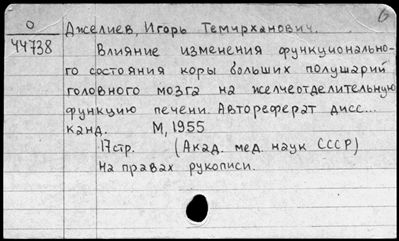 О
44738
Джелиев, Игорь Темирханович.
Влияние изменения функционально-
го состояния коры больших полушарий
головного мозга на желчеотделительную
функцию печени. Автореферат дисс...
канд. М, 1955
17стр. (Акад. мед. наук СССР)
На правах рукописи.